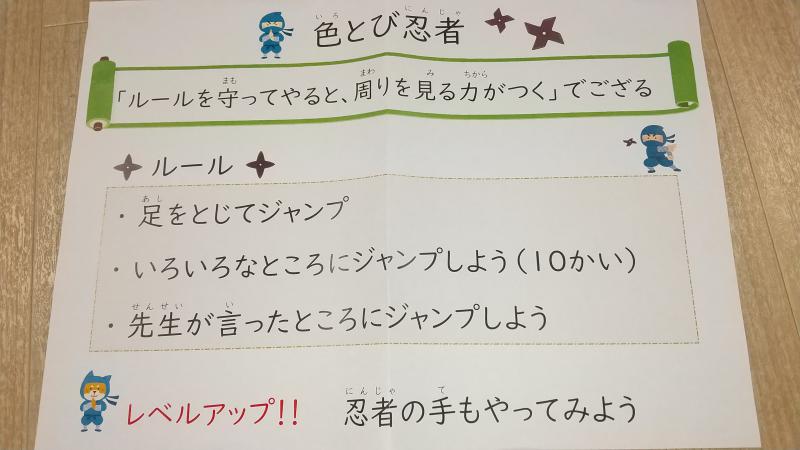 色とび忍者
「ルールを守ってやると、周りを見る力がつく」でござる
ルール
・足をとじてジャンプ
・いろいろなところにジャンプしよう(10かい)
・先生が言ったところにジャンプしよう
レベルアップ!! 忍者の手もやってみよう